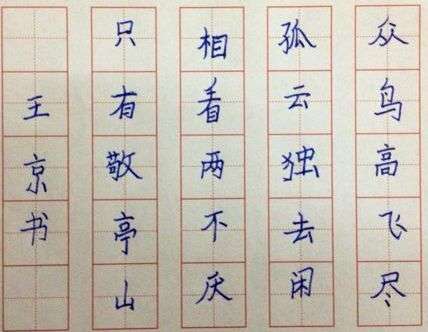 众鸟高飞尽
孤云独去闲
相看两不厌
只有敬亭山
王京书